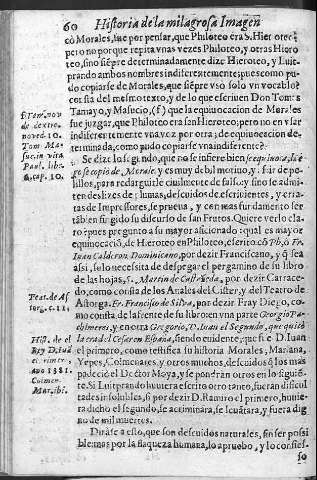 60 Historia de la milagrosa Imagen
cō Morales, fue por pensar, que Philoteo era S. Hieroteo:
pero no porque repita vnas vezes Philoteo, y otras Hiero
teo, sino siēpre determinadamente dize Hieroteo, y Luit-
prando ambos nombres indiferentemente; pues como pu-
do copiarse de Morales, que siēpre vsó solo vn vocablo?
consta del mesmo texto, y de lo que escriuen Don Tomas
f. Tam. nou
Tamayo, y Masucio, (f) que la equiuocacion de Morales
de dextro.
fue juzgar, que Philoteo era san Hieroteo; pero no en vsar
noved. 10.
indiferentemente vna voz por otra; de equiuocacion de-
Tom. Ma-
terminada, como pudo copiarse vna indiferente?
suc. in vita
Se dize lo segundo, que no se infiere bien
Paul. lib.
se copiò de Morales, y es muy debil motiuo, y asir de pe-
6. cap. 10.
lillos, para redarguirle ciuilmente de falso: y sino se admi-
ten deslizes de plumas, descuidos de escriuientes, y erra-
tas de Impressores, se prueua, y con mas fundamento ser
tābien fingido su discurso de san Frutos. Quiere verlo cla
ro? pues pregunto a su mayor aficionado: qual es mayor
equiuocaciō, de Hieroteo en Philoteo, escrito cō Ph, ò Fr.
Iuan Calderon Dominicano, por dezir Franciscano, y q̃ sea
assi, solo necessita de despegar el pergamino de su libro
de las hojas, Fr. Martin de Castañeda, por dezir Carrace-
do, como consta de los Anales del Cister, y del Teatro de
Teat. de As
Astorga. Fr. Francisco de Silva, por dezir Fray Diego, co-
torg. c. 11.
mo consta de la frente de su libro: en vna parte Georgio Pa-
chimeres, y en otra Gregorio, D. Iuan el Segundo, que quitò
Hist. de el
la era del Cesar en España, siendo euidente, que fue D. Iuan
Rey D. Iuā
el primero, como testifica su historia Morales, Mariana,
el primero
Yepes, Colmenares, y otros muchos, descuidos q̃ los mas
Año 1381.
padeciò el Doctor Moya, y se pondran otros en lo siguiēte.
Colmen.
Si Luitprando huuiera escrito otro tanto, fueran dificul-
Mar. ibi.
tades insolubles, si por dezir D. Ramiro el primero, huuie-
ra dicho el segundo, se acriminara, se leuātara, y fuera dig
no de mil muertes.
Dirase a esto, que son descuidos naturales, sin ser possi
bles mas por la flaqueza humana, lo aprueuo, y lo confies-
so